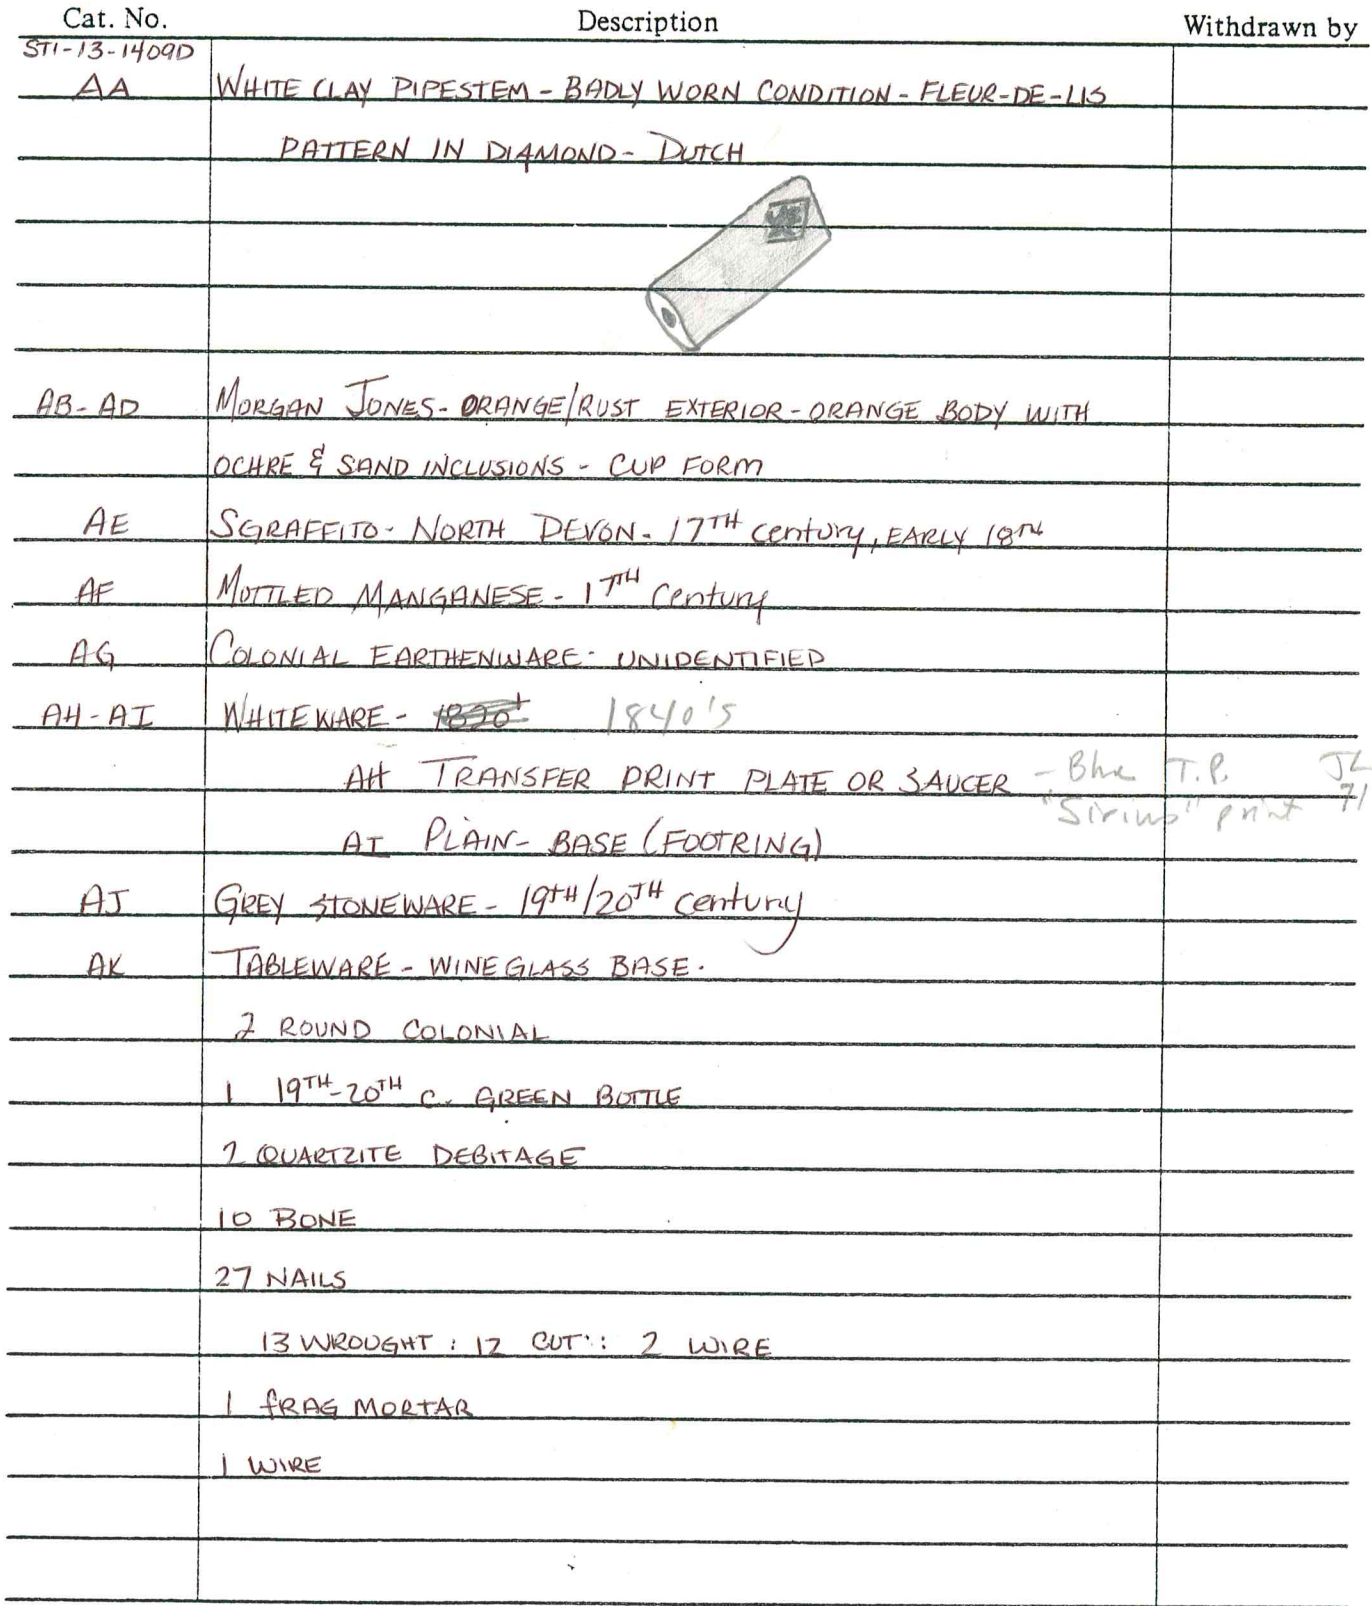 Cat. No. Description Withdrawn by
ST1-13-1409D
AA WHITE CLAY PIPESTEM - BADLY WORN CONDITION - FLEUR-DE-LIS
PATTERN IN DIAMOND - DUTCH
AB-AD MORGAN JONES - ORANGE/RUST EXTERIOR - ORANGE BODY WITH
OCHRE & SAND INCLUSIONS - CUP FORM
AE SGRAFFITO - NORTH DEVON - 17TH century, EARLY 18TH
AF MOTTLED MANGANESE - 17TH century
AG COLONIAL EARTHENWARE - UNIDENTIFIED
AH-AI WHITEWARE - 1820+ 1840's
AH TRANSFER PRINT PLATE OR SAUCER - Blue T.P. JL
"Sirius" print 71
AI PLAIN - BASE (FOOTRING)
AJ GREY STONEWARE - 19TH/20TH century
AK TABLEWARE - WINEGLASS BASE.
2 ROUND COLONIAL
1 19TH-20TH c. GREEN BOTTLE
2 QUARTZITE DEBITAGE
10 BONE
27 NAILS
13 WROUGHT : 12 CUT :: 2 WIRE
1 FRAG MORTAR
1 WIRE